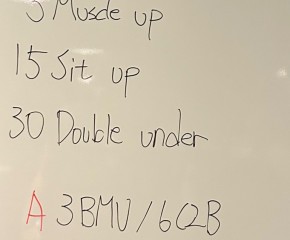 3 Muscle up
15 Sit up
30 Double under
A 3BMU/6C2B